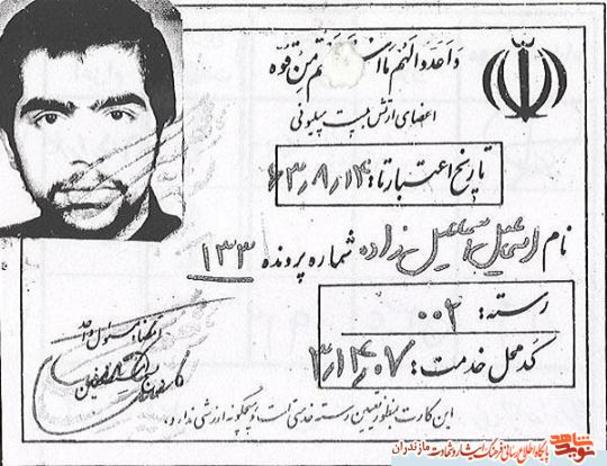 وَاَعِدّوا لَهُم مَا اسْتَطَعْتُم مِن قُوَّة
اعضای ارتش بیست میلیونی
تاریخ اعتبار تا: ۶۳٫۸٫۱۴
نام اسماعیل اسماعیل زاده شماره پرونده ۱۳۳
رسته: ۰۰۲
کد محل خدمت: ۳٫۱۴٫۰۷
امضاء مسئول واحد
این کارت بمنظور تعیین رسته خدمتی است و هیچگونه ارزشی ندارد.
نوید شاهد
پایگاه اطلاع رسانی فرهنگ ایثار و شهادت مازندران